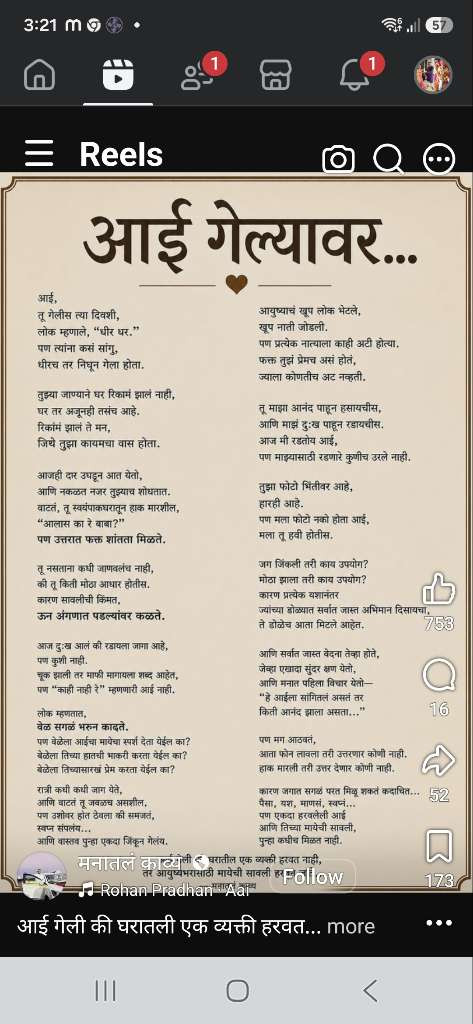 3:21
57
1
1
Reels
आई गेल्यावर...
आई,
तू गेलीस त्या दिवशी,
लोक म्हणाले, “धीर धर.”
पण त्यांना कसं सांगु,
धीरच तर निघून गेला होता.
तुझ्या जाण्याने घर रिकामं झालं नाही,
घर तर अजूनही तसंच आहे.
रिकामं झालं ते मन,
जिथे तुझा कायमचा वास होता.
आजही दार उघडून आत येतो,
आणि नकळत नजर तुझ्याच शोधतात.
वाटतं, तू स्वयंपाकघरातून हाक मारशील,
“आलास का रे बाबा?”
पण उत्तरात फक्त शांतता मिळते.
तू नसताना कधी जाणवलंच नाही,
की तू किती मोठा आधार होतीस.
कारण सावलीची किंमत,
ऊन अंगणात पडल्यांवर कळते.
आज दुःख आलं की रडायला जागा आहे,
पण कुशी नाही.
चूक झाली तर माफी मागायला शब्द आहेत,
पण “काही नाही रे” म्हणणारी आई नाही.
लोक म्हणतात,
वेळ सगळं भरुन काढते.
पण वेळेला आईचा मायेचा स्पर्श देता येईल का?
वेळेला तिच्या हातची भाकरी करता येईल का?
वेळेला तिच्यासारखं प्रेम करता येईल का?
रात्री कधी कधी जाग येते,
आणि वाटतं तू जवळच असशील,
पण उशीवर होत ठेवला की समजतं,
स्वप्न संपलंय...
आणि वास्तव पुन्हा एकदा जिंकून गेलंय.
आयुष्याचं खूप लोक भेटले,
खूप नाती जोडली.
पण प्रत्येक नात्याला काही अटी होत्या.
फक्त तुझं प्रेमच असं होतं,
ज्याला कोणतीच अट नव्हती.
तू माझा आनंद पाहून हसायचीस,
आणि माझं दुःख पाहून रडायचीस.
आज मी रडतोय आई,
पण माझ्यासाठी रडणारे कुणीच उरले नाही.
तुझा फोटो भिंतीवर आहे,
हारही आहे.
पण मला फोटो नको होता आई,
मला तू हवी होतीस.
जग जिंकली तरी काय उपयोग?
मोठा झाला तरी काय उपयोग?
कारण प्रत्येक यशानंतर
ज्यांच्या डोळ्यात सर्वात जास्त अभिमान दिसायचा,
ते डोळेच आता मिटले आहेत.
आणि सर्वात जास्त वेदना तेव्हा होते,
जेव्हा एखादा सुंदर क्षण येतो,
आणि मनात पहिला विचार येतो—
“हे आईला सांगितलं असतं तर
किती आनंद झाला असता...”
पण मग आठवतं,
आता फोन लावला तरी उत्तरणार कोणी नाही.
हाक मारली तरी उत्तर देणार कोणी नाही.
कारण जगात सगळं परत मिळू शकतं कदाचित...
पैसा, यश, माणसं, स्वप्नं...
पण एकदा हरवलेली आई
आणि तिच्या मायेची सावली,
पुन्हा कधीच मिळत नाही.
गेली की घरातील एक व्यक्ती हरवत नाही,
तर आयुष्यभरासाठी मायेची सावली
753
16
52
173
मनातलं काव्य
Follow
Rohan Pradhan · Aai
आई गेली की घरातली एक व्यक्ती हरवत... more